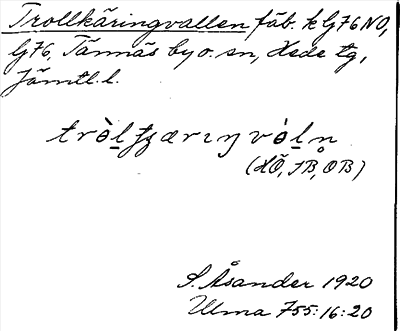 Trollkäringvallen fäb. k G76 NO,
G76, Tännäs by o. sn, Hede tg,
Jämtl. l.
(HÖ, JB, OB)
S. Åsander 1920
Ulma 755:16:20